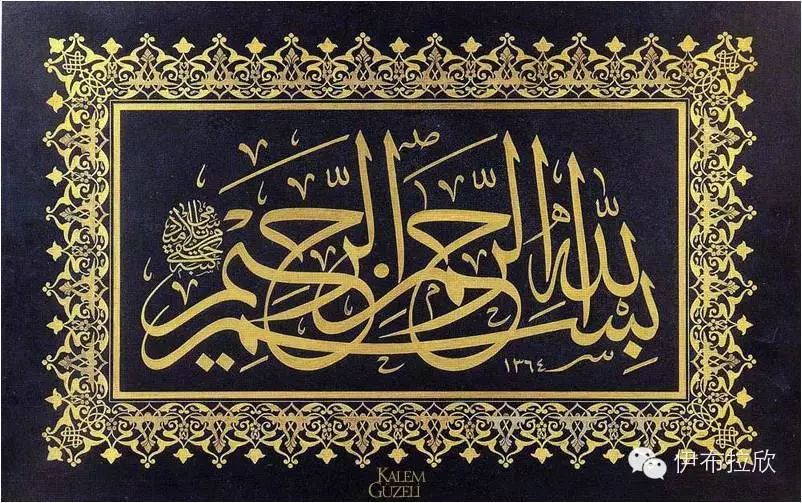 بِسْمِ اللهِ الرَّحْمٰنِ الرَّحِيمِ
١٣٦٤
KALEM
GÜZELİ
伊布拉欣